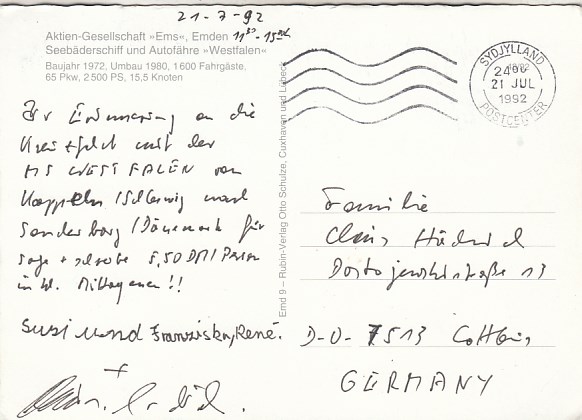 21-7-92
Aktien-Gesellschaft »Ems«, Emden
Seebäderschiff und Autofähre »Westfalen«
Baujahr 1972, Umbau 1980, 1 600 Fahrgäste,
65 Pkw, 2 500 PS, 15,5 Knoten
Zur Erinnerung an die
mit der
MS WESTFALEN von
Kappeln/Schleswig nach
Sonderborg/Dänemark für
sage + schreibe 5,50 DM/Person
inkl. Mittagessen!!
Susi und Franziska, René.
+
Emd 9 – Rubin-Verlag Otto Schulze, Cuxhaven und Lübeck
SYDJYLLAND
2400
21 JUL
1992
POSTCENTER
Familie
Claus
Dostojewskistraße 13
D-O-7513 Cottbus
GERMANY